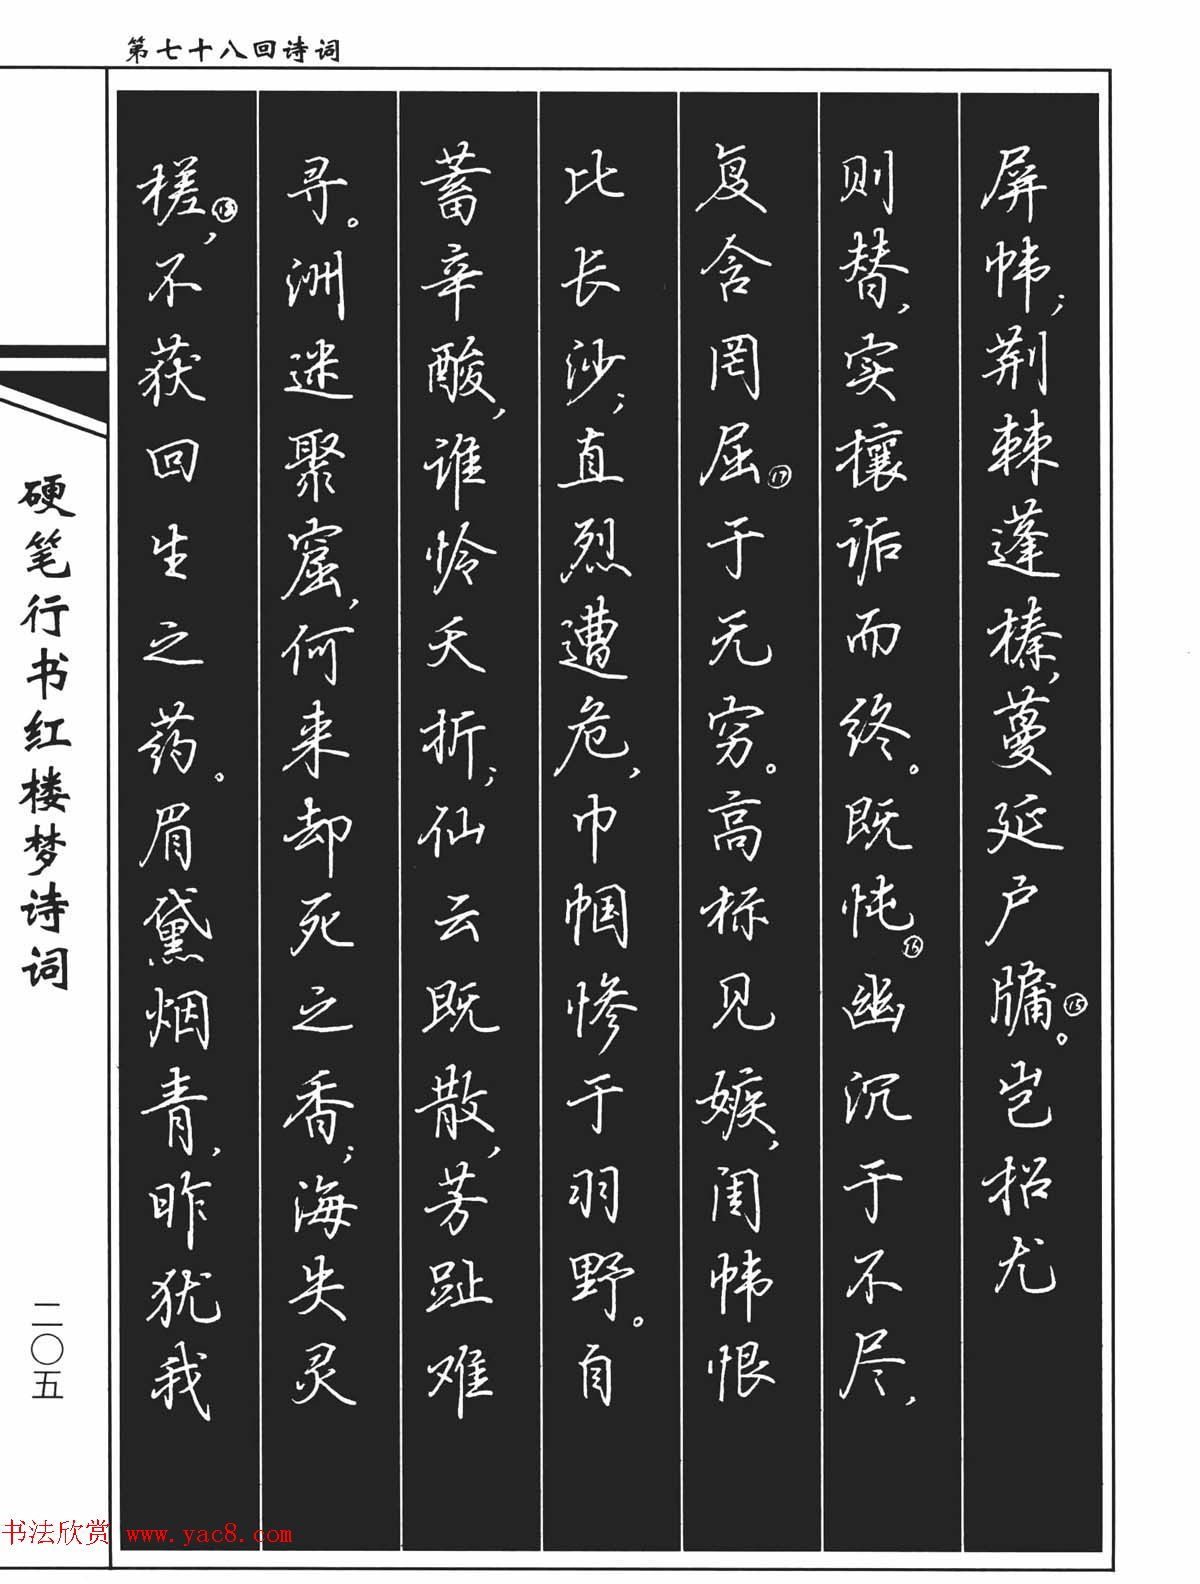 第七十八回诗词
屏帏；荆棘蓬榛，蔓延户牖⑮。岂招尤
则替，实攘诟而终。既忳⑯幽沉于不尽，
复含罔屈⑰于无穷。高标见嫉，闺帏恨
比长沙；直烈遭危，巾帼惨于羽野。自
蓄辛酸，谁怜夭折；仙云既散，芳趾难
寻。洲迷聚窟，何来却死之香；海失灵
槎⑱，不获回生之药。眉黛烟青，昨犹我
硬笔行书红楼梦诗词
二〇五
书法欣赏 www.yac8.com